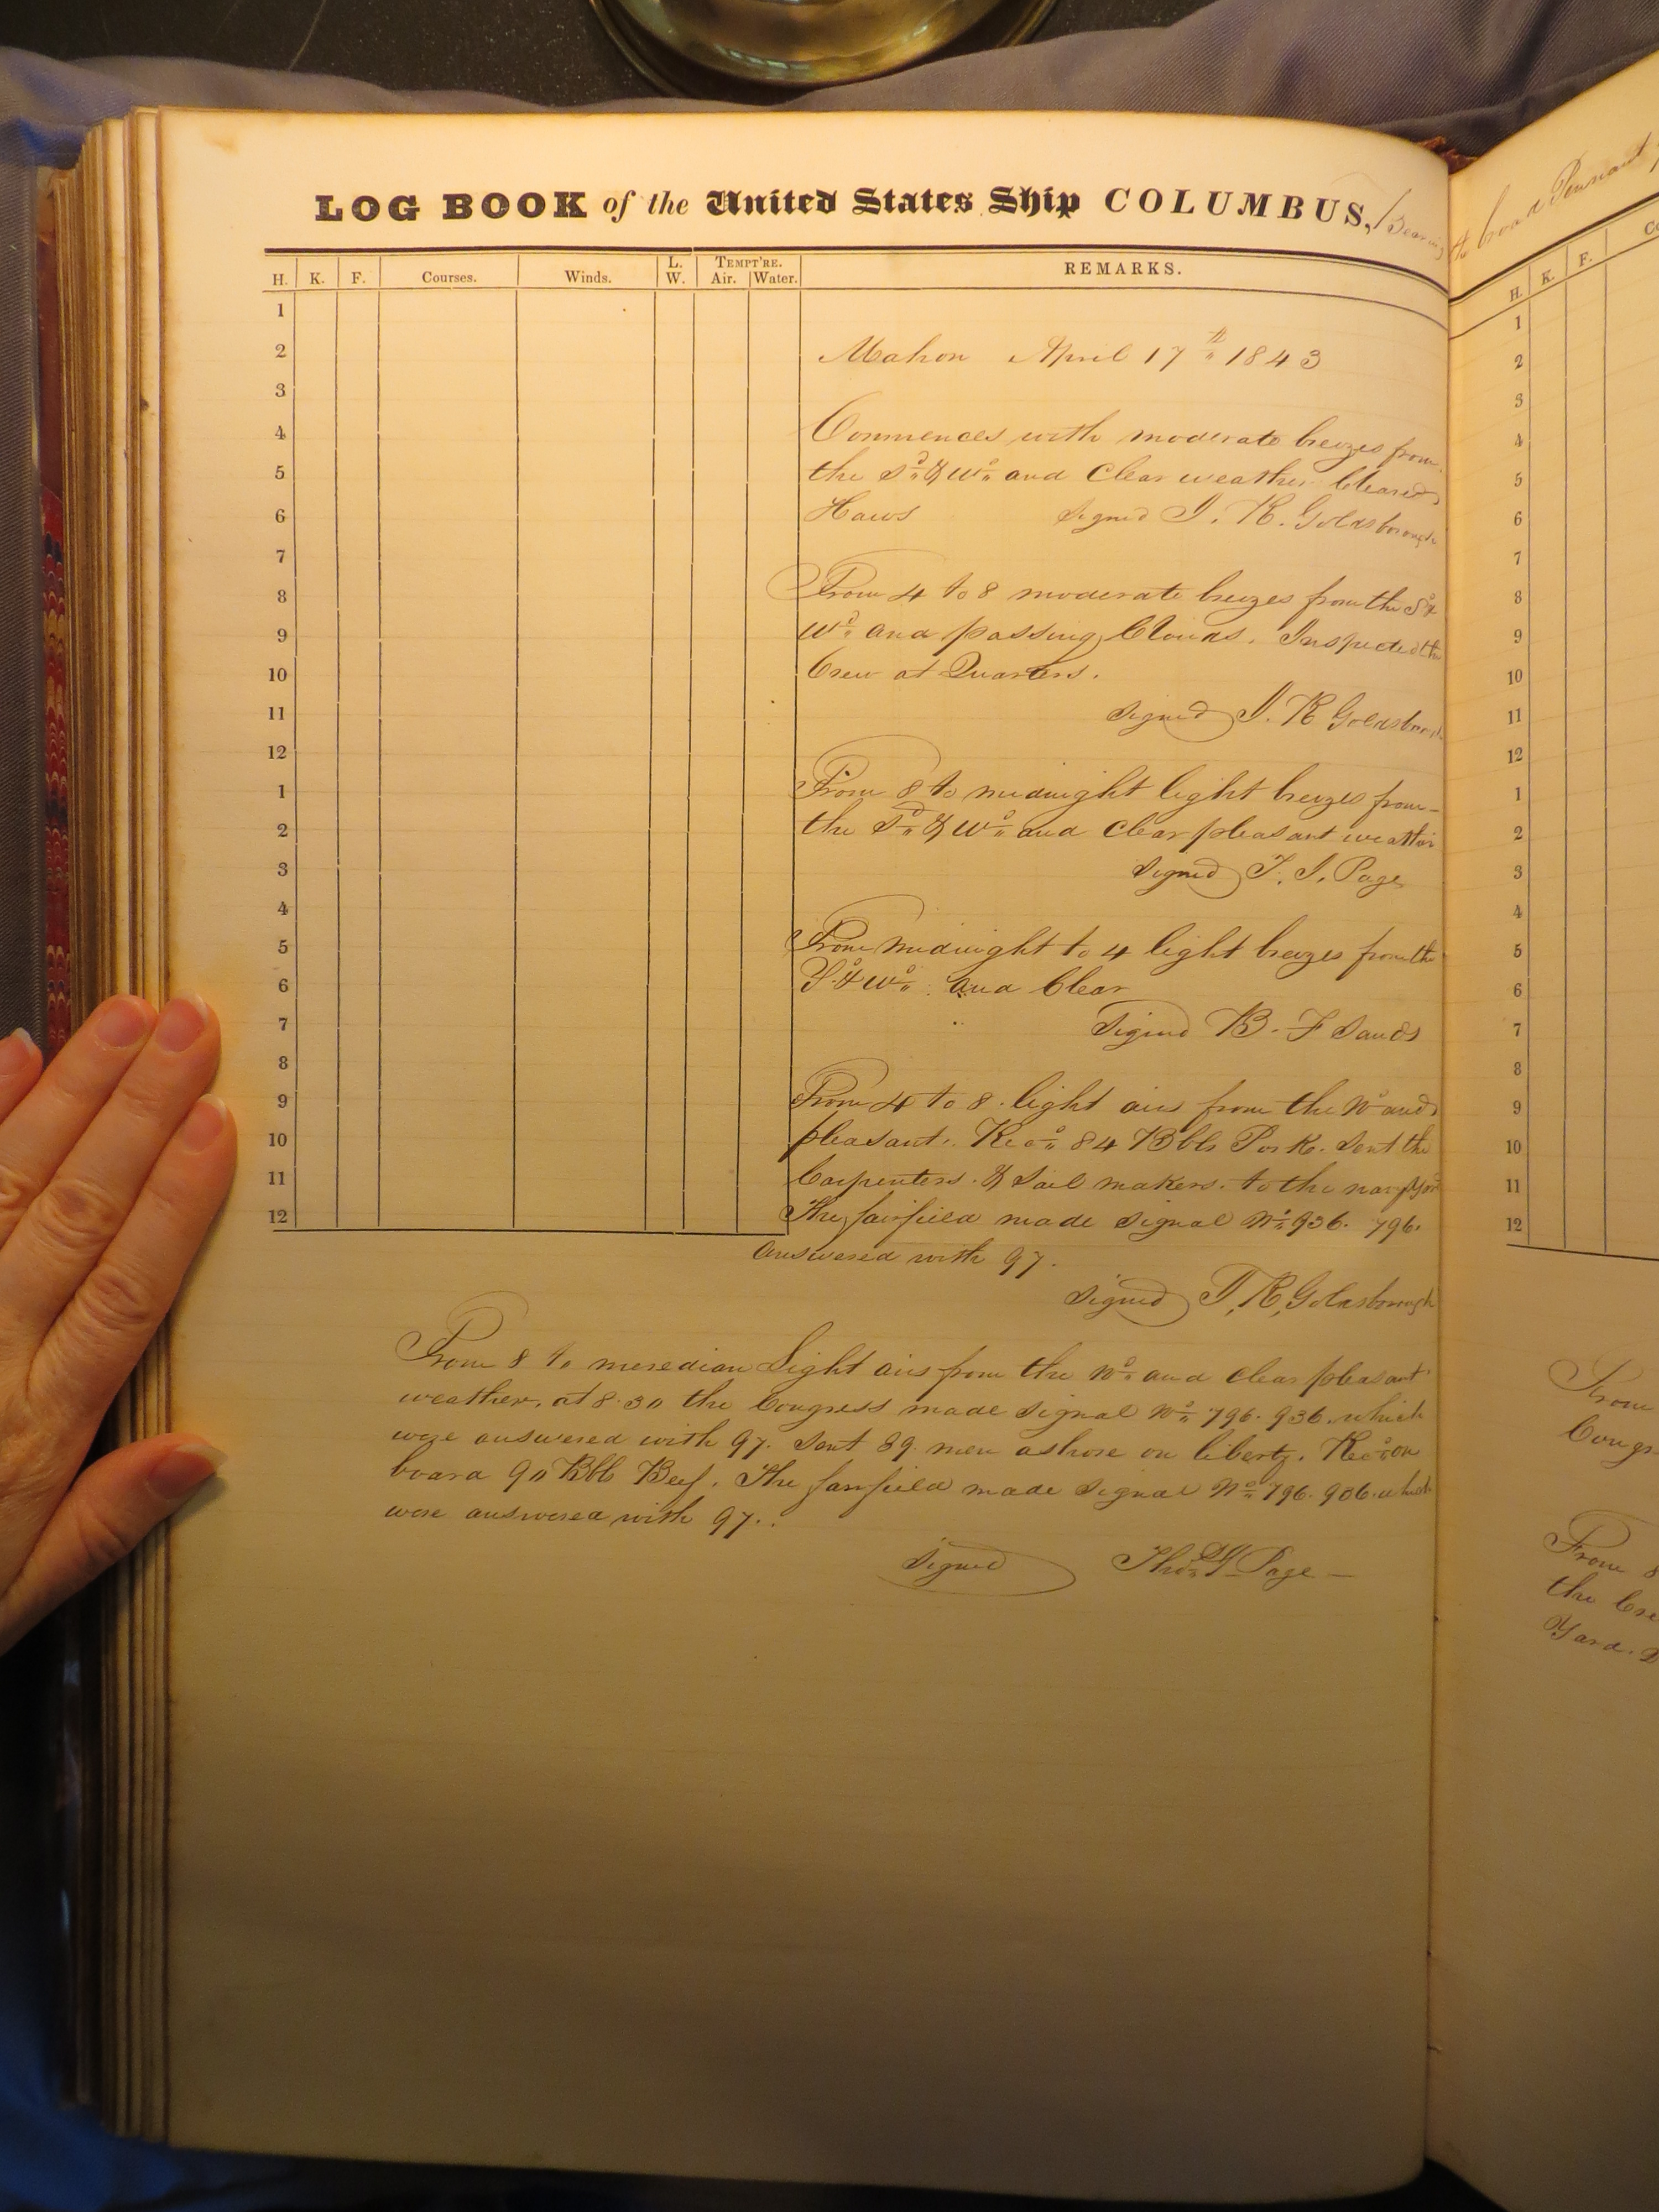 LOG BOOK of the United States Ship COLUMBUS, / Bearing
H. K. F. Courses. Winds. L. W. TEMPT'RE. Air. Water. REMARKS.
1
2
3
4
5
6
7
8
9
10
11
12
1
2
3
4
5
6
7
8
9
10
11
12
Mahon April 17th 1843
Commences with moderate breezes from
the Sd & Wd and Clear weather Cleared
Haws Signed J. R. Goldsborough
From 4 to 8 moderate breezes from the Sd &
Wd and passing Clouds. Inspected the
Crew at Quarters.
Signed J. R Goldsborough
From 8 to midnight light breezes from
the Sd & Wd and Clear pleasant weather
Signed T. J. Page
From midnight to 4 light breezes from the
Sd & Wd and Clear
Signed B. F Sands
From 4 to 8. light airs from the Nd and
pleasant. Recd 84 Bbls Pork. Sent the
Carpenters. & Sail makers. to the navy Yard
The fairfield made Signal No 936. 796.
answered with 97.
Signed J. R. Goldsborough
From 8 to meredian Light airs from the Nd and clear pleasant
weather. at 8.30 the Congress made Signal No 796. 936. which
were answered with 97. Sent 89 men ashore on liberty. Recd on
board 90 Bbls Beef. The fairfield made Signal No 796. 936. which
were answered with 97.
Signed Thos J. Page
the broad Pennant
H. K. F.
1
2
3
4
5
6
7
8
9
10
11
12
1
2
3
4
5
6
7
8
9
10
11
12
From
From 8
the
Yard.